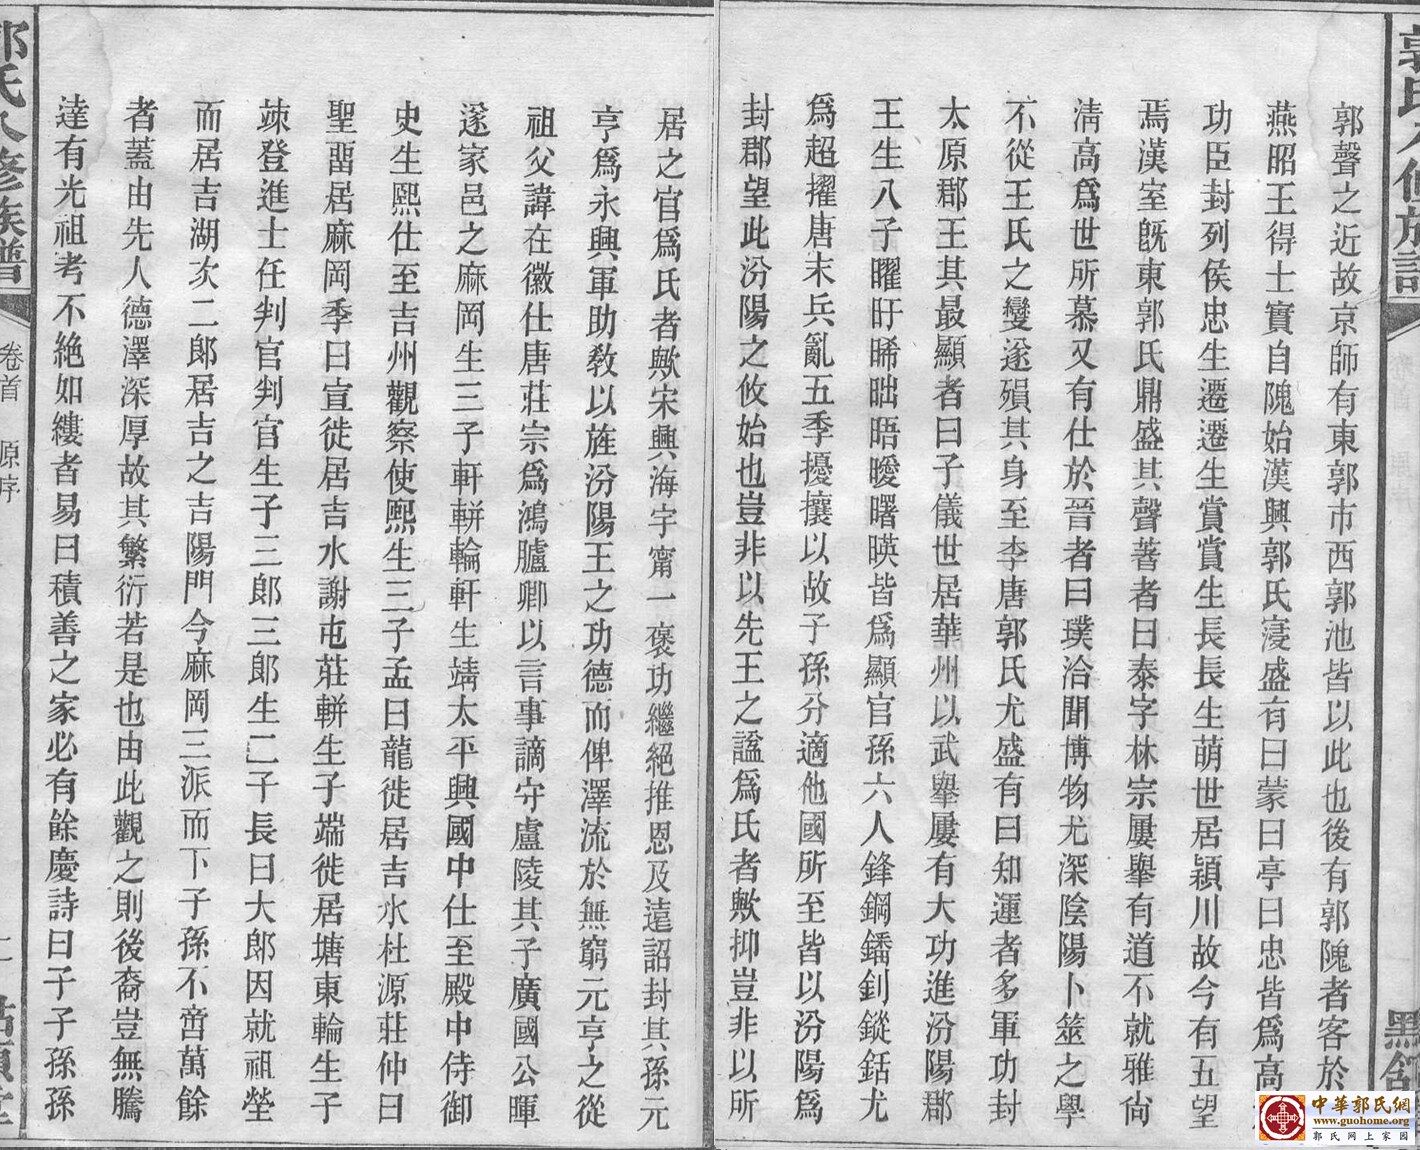 郭氏八修族譜
郭聲之近故京師有東郭市西郭池皆以此也後有郭隗者客於
燕昭王得士實自隗始漢興郭氏寖盛有曰蒙曰亭曰忠皆爲高
功臣封列侯忠生遷遷生賞賞生長長生萌世居潁川故今有五望
焉漢室旣東郭氏鼎盛其聲著者曰泰字林宗屢舉有道不就雅尙
淸高爲世所慕又有仕於晉者曰璞洽聞博物尤深陰陽卜筮之學
不從王氏之變遂殞其身至李唐郭氏尤盛有曰知運者多軍功封
太原郡王其最顯者曰子儀世居華州以武舉屢有大功進汾陽郡
王生八子曜旰晞昢晤曖曙暎皆爲顯官孫六人鋒鋼鐇釗鏦銛尤
爲超擢唐末兵亂五季擾攘以故子孫分適他國所至皆以汾陽爲
封郡望此汾陽之攸始也豈非以先王之謚爲氏者歟抑豈非以所
居之官爲氏者歟宋興海宇甯一褒功繼絕推恩及遠詔封其孫元
亨爲永興軍助敎以旌汾陽王之功德而俾澤流於無窮元亨之從
祖父諱在徽仕唐莊宗爲鴻臚卿以言事謫守盧陵其子廣國公暉
遂家邑之麻岡生三子軒軿輪軒生靖太平興國中仕至殿中侍御
史生熙仕至吉州觀察使熙生三子孟曰龍徙居吉水杜源莊仲曰
聖畱居麻岡季曰宣徙居吉水謝屯莊軿生子端徙居塘東輪生子
竦登進士任判官判官生子三郎三郎生二子長曰大郎因就祖塋
而居吉湖次二郎居吉之吉陽門今麻岡三派而下子孫不啻萬餘
者蓋由先人德澤深厚故其繁衍若是也由此觀之則後裔豈無騰
達有光祖考不絶如縷者易曰積善之家必有餘慶詩曰子子孫孫
郭氏八修族譜
卷首 原序
二
中華郭氏網
www.guohome.org
郭氏网上家园